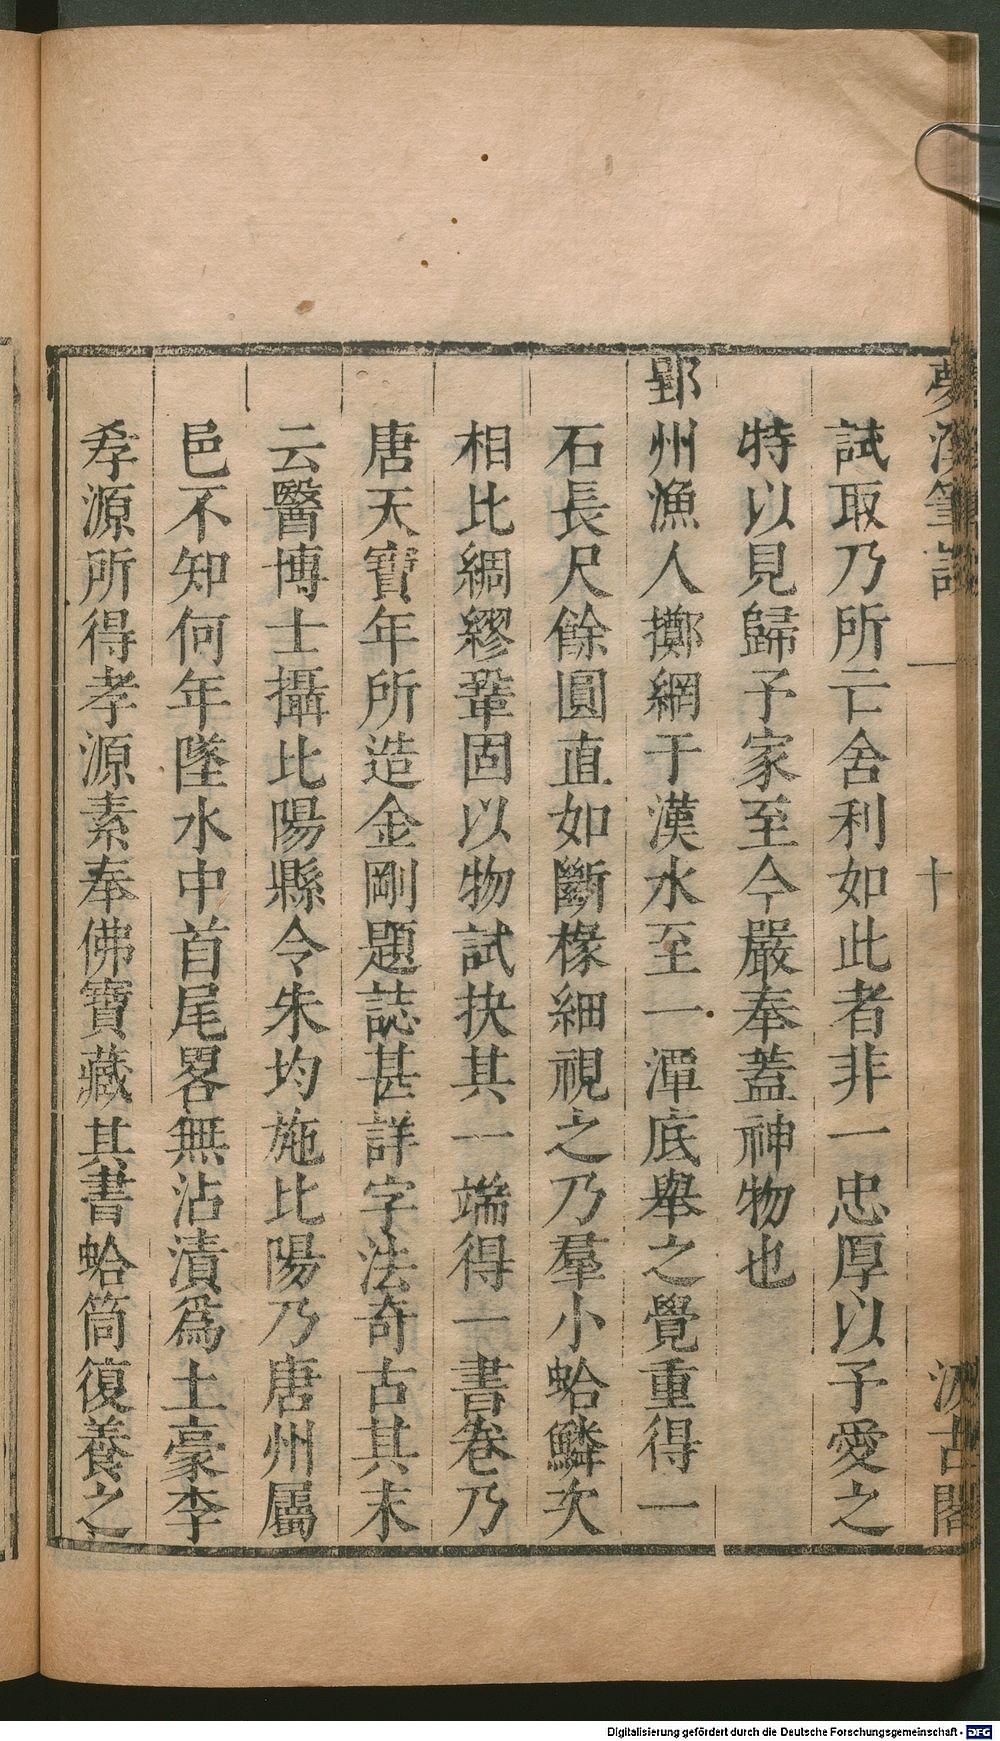 夢溪筆談
十
汲古閣
試取乃所亡舍利如此者非一忠厚以予愛之
特以見歸予家至今嚴奉蓋神物也
郢州漁人擲網于漢水至一潭底舉之覺重得一
石長尺餘圓直如斷椽細視之乃羣小蛤鱗次
相比綢繆鞏固以物試抉其一端得一書卷乃
唐天寶年所造金剛題誌甚詳字法奇古其末
云醫博士攝比陽縣令朱均施比陽乃唐州屬
邑不知何年墜水中首尾畧無沾漬爲土豪李
孝源所得孝源素奉佛寶藏其書蛤筒復養之
Digitalisierung gefördert durch die Deutsche Forschungsgemeinschaft - DFG